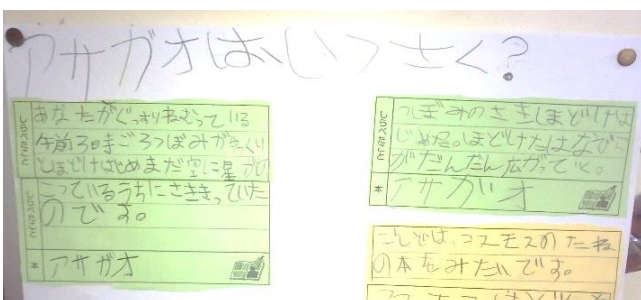 アサガオは、いつさく?
しらべたこと
あなたがぐっすりねむっている
午前3時ごろつぼみがゆっくり
とほどけはじめまだ空に星がの
しらべたこと
こっているうちにさききっていた
のです。
本
アサガオ
しらべたこと
つぼみのさきしほどけは
じめる。ほどけたはなびら
がだんだん広がってく。
本
アサガオ
こんどは、コスモスのたね
の本をみたいです。